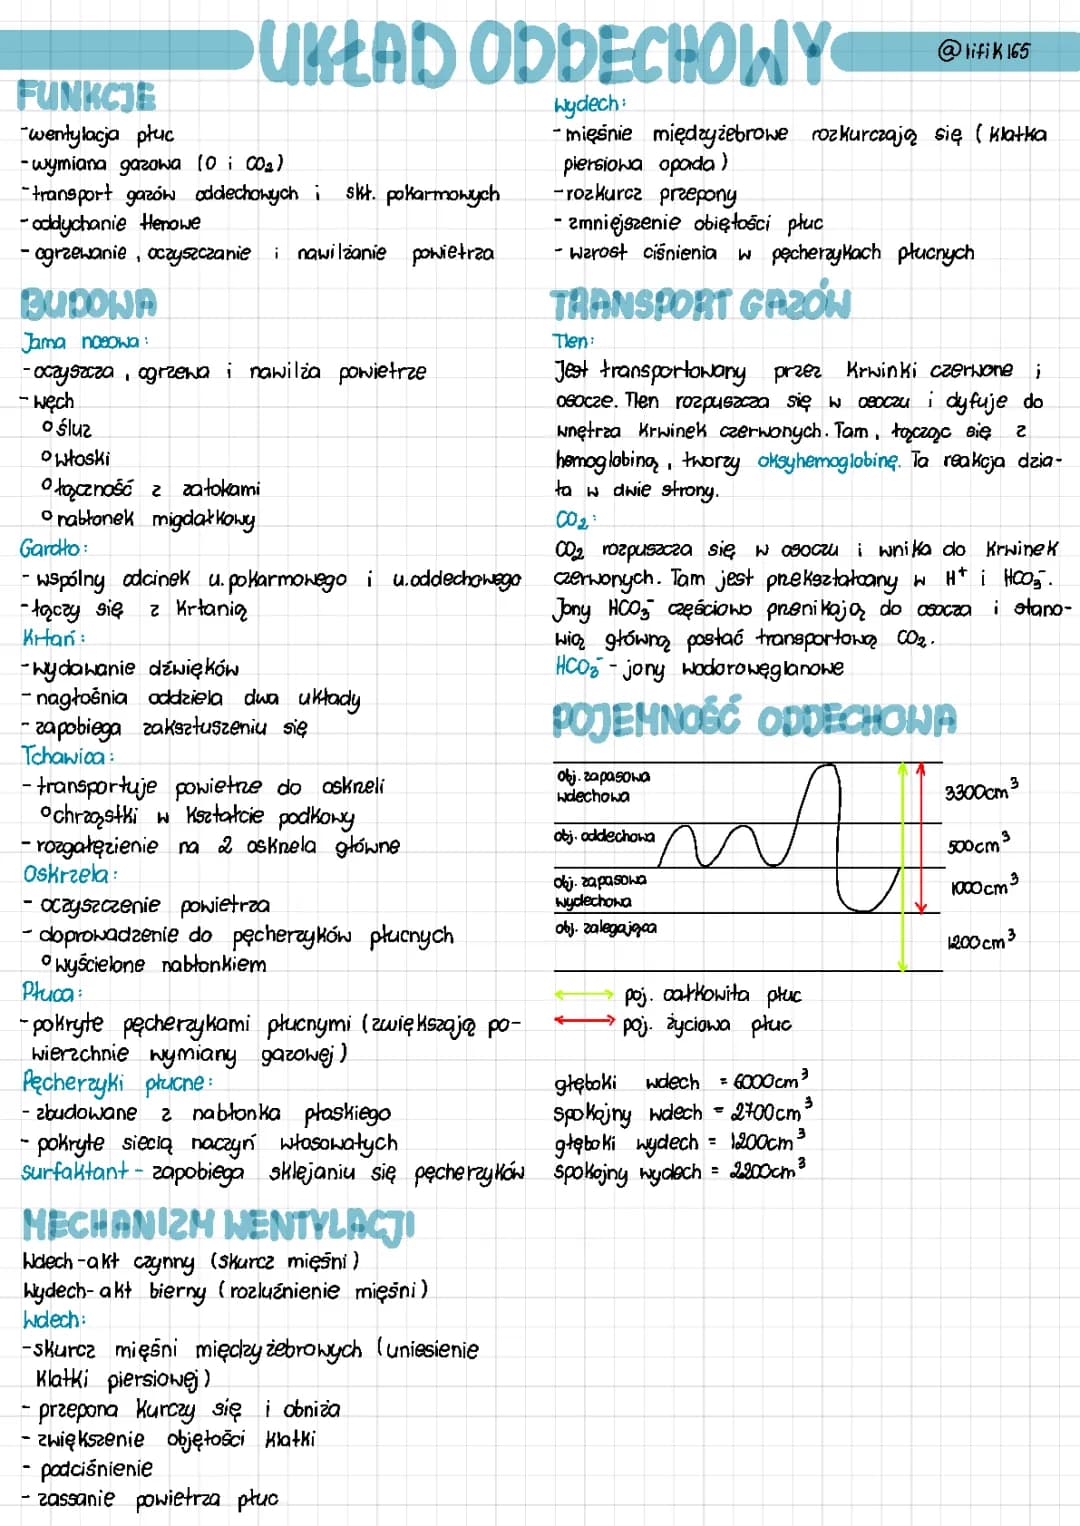 UKŁAD ODDECHOWY
@lifik165
FUNKCJE
-wentylacja płuc
-wymiana gazowa (O i CO₂)
-transport gazów oddechowych i skł. pokarmowych
-oddychanie tlenowe
-ogrzewanie, oczyszczanie i nawilżanie powietrza
BUDOWA
Jama nosowa:
-oczyszcza, ogrzewa i nawilża powietrze
-węch
° śluz
° włoski
° łączność z zatokami
° nabłonek migdałkowy
Gardło:
- wspólny odcinek u.pokarmowego i u.oddechowego
-łączy się z krtanią
Krtań:
-wydawanie dźwięków
-nagłośnia oddziela dwa układy
- zapobiega zaksztuszeniu się
Tchawica:
-transportuje powietrze do oskrzeli
° chrząstki w kształcie podkowy
- rozgałęzienie na 2 oskrzela główne
Oskrzela:
- oczyszczenie powietrza
- doprowadzenie do pęcherzyków płucnych
° wyścielone nabłonkiem
Płuca:
-pokryte pęcherzykami płucnymi (zwiększają po-
wierzchnie wymiany gazowej)
Pęcherzyki płucne:
- zbudowane z nabłonka płaskiego
- pokryte siecią naczyń włosowatych
surfaktant - zapobiega sklejaniu się pęcherzyków
MECHANIZM WENTYLACJI
Wdech -akt czynny (skurcz mięśni)
Wydech- akt bierny (rozluźnienie mięśni)
Wdech:
-skurcz mięśni międzyżebrowych (uniesienie
klatki piersiowej)
- przepona kurczy się i obniża
- zwiększenie objętości klatki
- podciśnienie
- zassanie powietrza płuc
Wydech:
- mięśnie międzyżebrowe rozkurczają się (klatka
piersiowa opada)
-rozkurcz przepony
- zmniejszenie obiętości płuc
- wzrost ciśnienia w pęcherzykach płucnych
TRANSPORT GAZÓW
Tlen:
Jest transportowany przez krwinki czerwone i
osocze. Tlen rozpuszcza się w osoczu i dyfuje do
wnętrza krwinek czerwonych. Tam, łącząc się z
hemoglobiną, tworzy oksyhemoglobinę. Ta reakcja dzia-
ła w dwie strony.
CO₂:
CO₂ rozpuszcza się w osoczu i wnika do krwinek
czerwonych. Tam jest przekształcany w H⁺ i HCO₃⁻.
Jony HCO₃⁻ częściowo przenikają do osocza i stano-
wią główną postać transportową CO₂.
HCO₃⁻ - jony wodorowęglanowe
POJEMNOŚĆ ODDECHOWA
obj. zapasowa
wdechowa
3300cm³
obj. oddechowa
500cm³
obj. zapasowa
wydechowa
1000cm³
obj. zalegająca
1200cm³
poj. całkowita płuc
poj. życiowa płuc
głęboki wdech = 6000cm³
spokojny wdech = 2700cm³
głęboki wydech = 1200cm³
spokojny wydech = 2200cm³